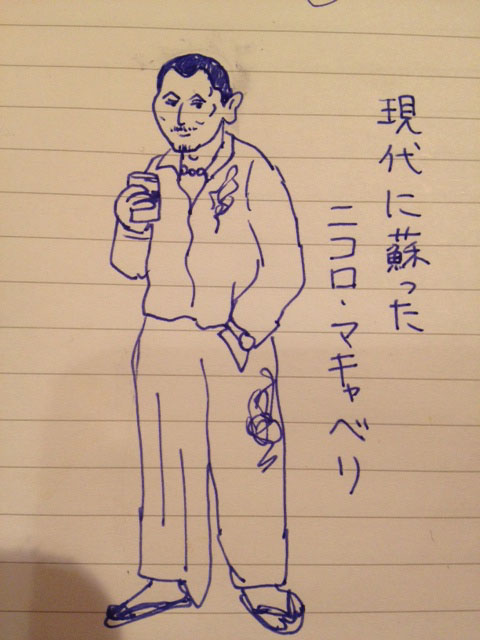 現代に蘇った
ニコロ・マキャベリ